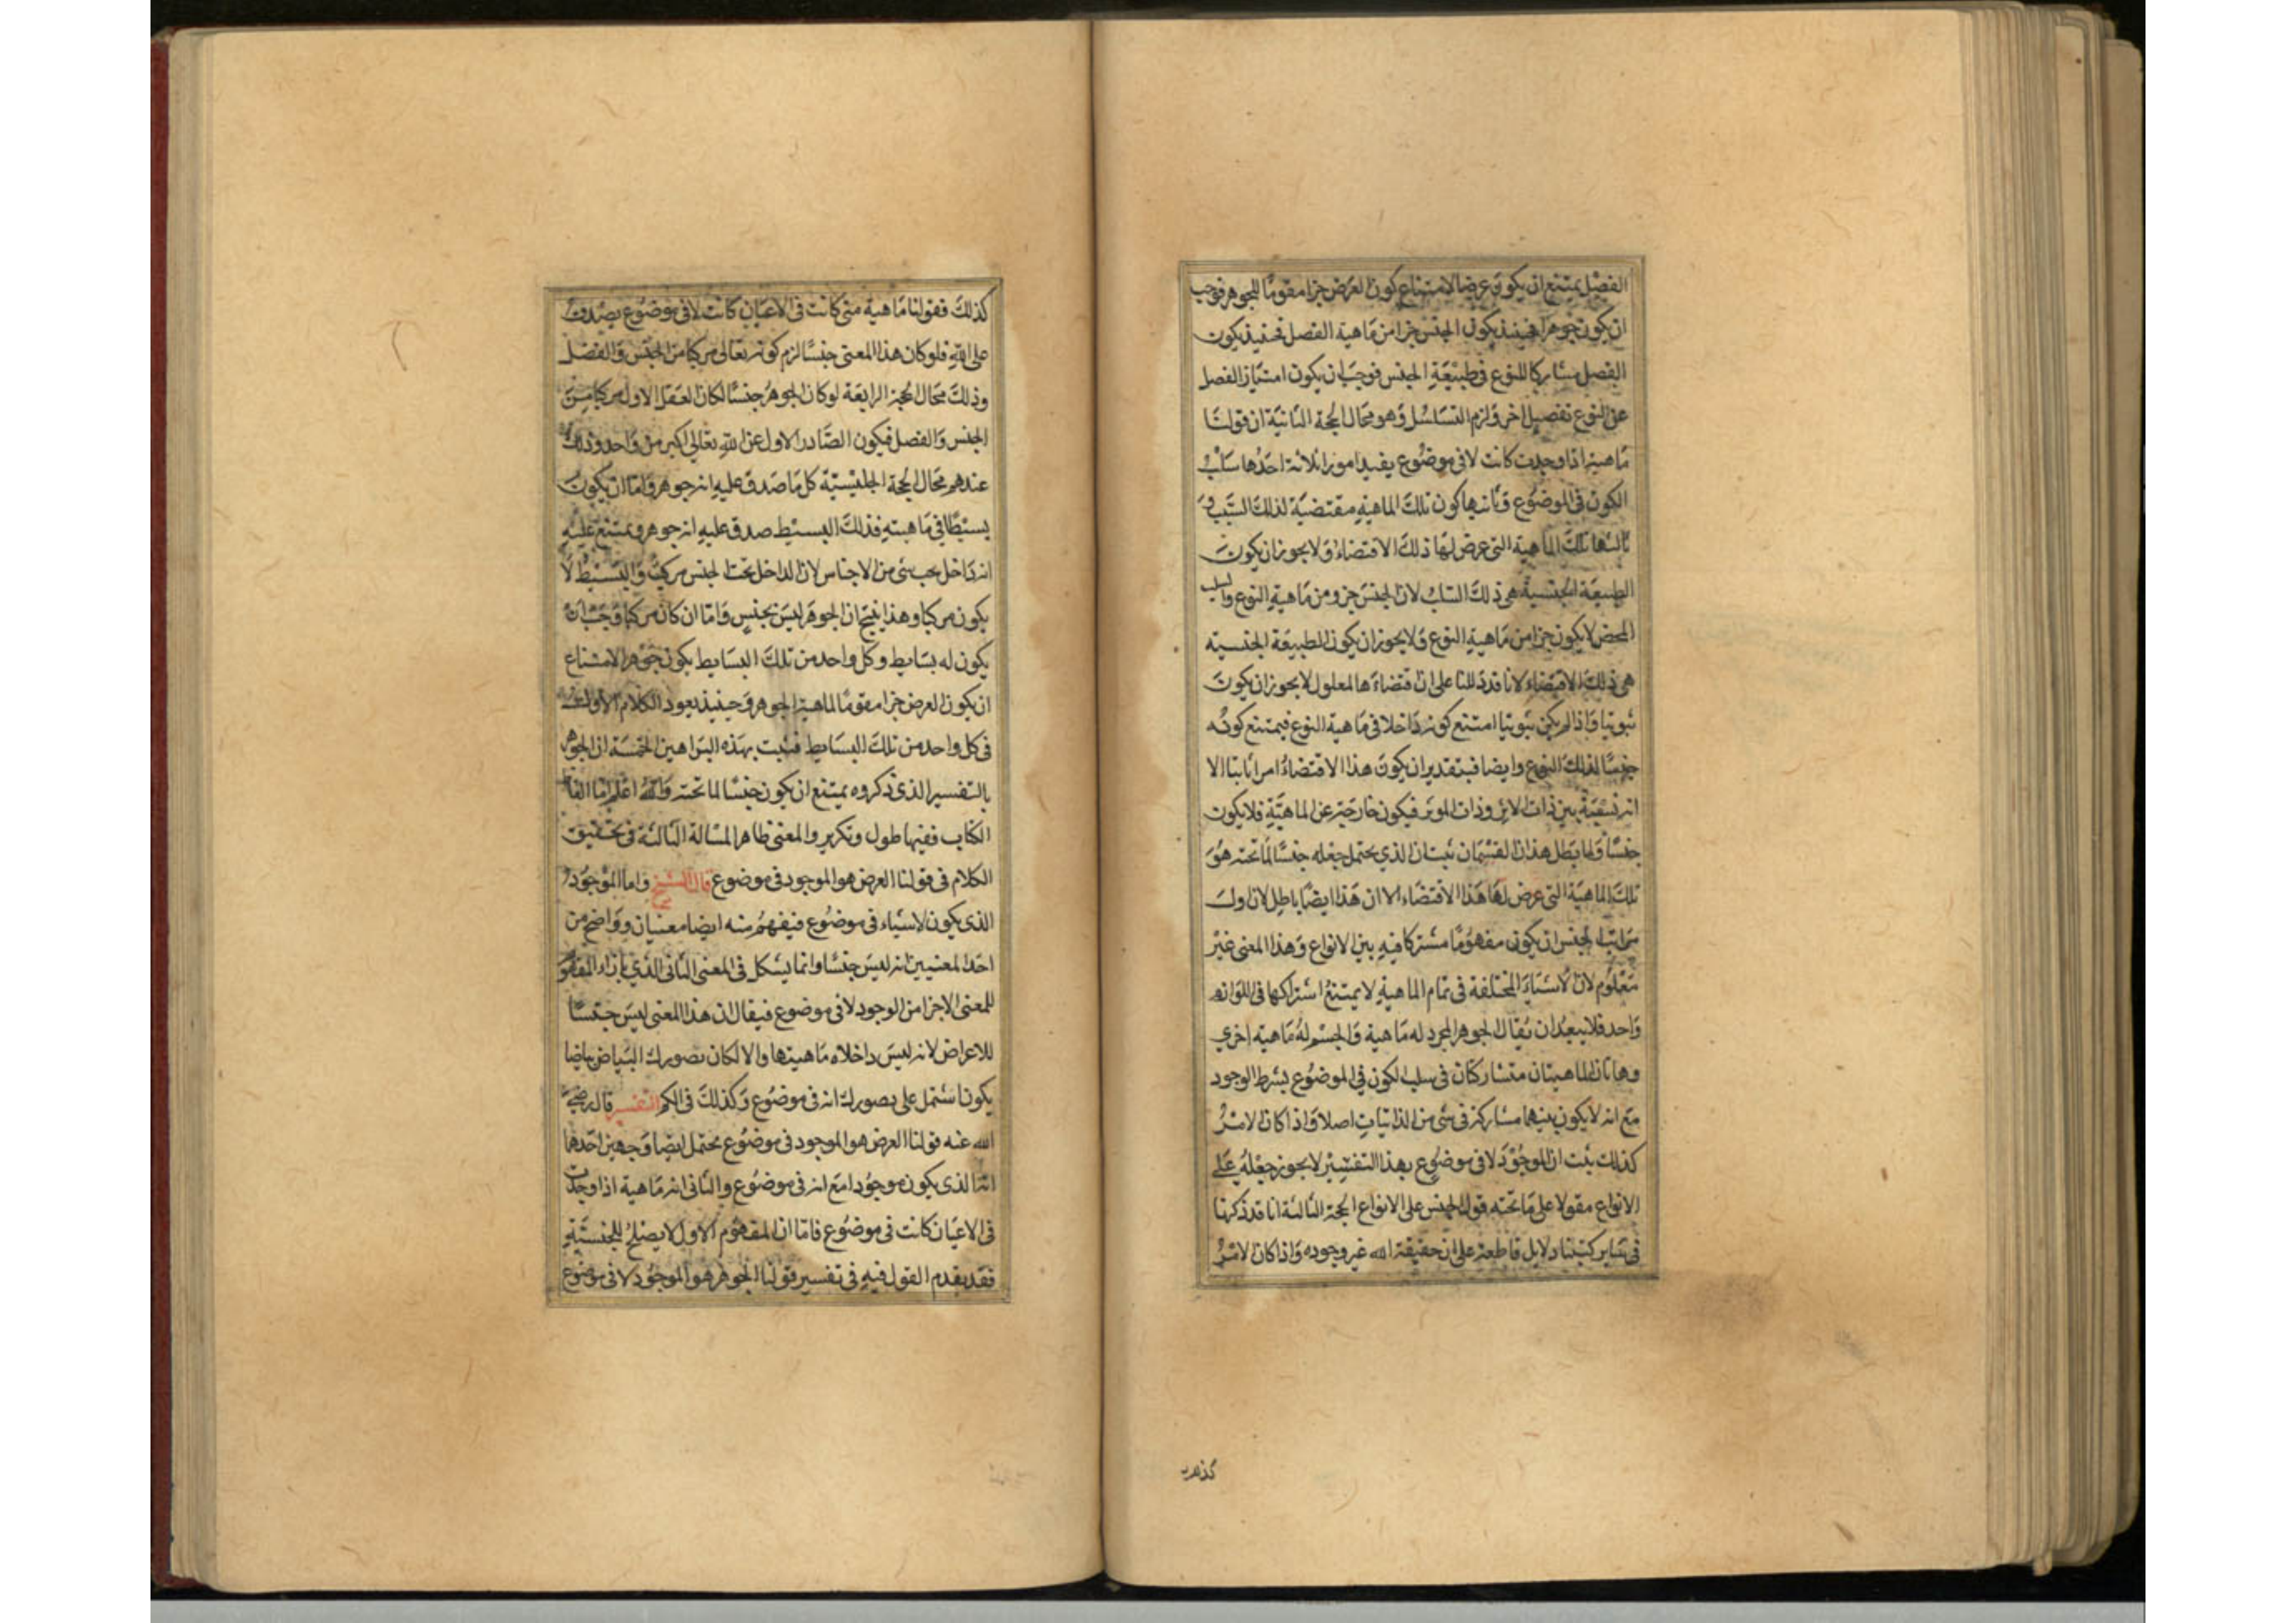 الفصل يمتنع ان يكون عرضا لامتناع كون العرض جزا مقوما للجوهر فوجب
ان يكون جوهرا فحينئذ يكون الجنس جزا من ماهية الفصل فحينئذ يكون
الفصل مشاركا للنوع في طبيعة الجنس فوجب ان يكون امتياز الفصل
عن النوع بفصيل اخر ولزم التسلسل وهو محال الحجة الثانية ان قولنا
ماهية اذا وجدت كانت لا في موضوع يفيد امورا ثلاثة احدها سلب
الكون في الموضوع وثانيها كون تلك الماهية مقتضية لذلك السلب و
ثالثها تلك الماهية التي عرض لها ذلك الاقتضاء ولا يجوز ان يكون
الطبيعة الجنسية هي ذلك السلب لان الجنس جزو من ماهية النوع والسلب
المحض لا يكون جزا من ماهية النوع ولا يجوز ان يكون الطبيعة الجنسية
هي ذلك الاقتضاء لانا قد دللنا على ان اقتضاءها لمعلول لا يجوز ان يكون
ثبوتيا واذا لم يكن ثبوتيا امتنع كونه داخلا في ماهية النوع فيمتنع كونه
جنسا لذلك النوع وايضا فبتقدير ان يكون هذا الاقتضاء امرا ثابتا الا
انه نسبية بين ذات الاثر وذات الموثر فيكون خارجة عن الماهية فلا يكون
جنسا ولما بطل هذان القسمان ثبت ان الذي يحتمل جعله جنسا لما تحته هو
تلك الماهية التي عرض لها هذا الاقتضاء الا ان هذا ايضا باطل لان اول
مراتب الجنس ان يكون مفهوما مشتركا فيه بين الانواع وهذا المعنى غير
معلوم لان الاشياء المختلفة في تمام الماهية لا يمتنع اشتراكها في اللوازم
واحد فلا يبعد ان يقال الجوهر المجرد له ماهية والجسم له ماهية اخري
وهاتان الماهيتان متشاركتان في سلب الكون في الموضوع بشرط الوجود
مع انه لا يكون بينهما مشاركة في شي من الذاتيات اصلا واذا كان الامر
كذلك ثبت ان الموجود لا في موضوع بهذا التفسير لا يجوز جعله على
الانواع مقولا على ما تحته قول الجنس على الانواع الحجة الثالثة انا قد ذكرنا
في سائر كتبنا دلايل قاطعة على ان حقيقة الله غير وجوده واذا كان الامر
كذلك فقولنا ماهية متى كانت في الاعيان كانت لا في موضوع يصدق
على الله فلو كان هذا المعنى جنسا لزم كونه تعالى مركبا من الجنس والفصل
وذلك محال الحجة الرابعة لو كان الجوهر جنسا لكان العقل الاول مركبا من
الجنس والفصل فيكون الصادر الاول عن الله تعالى اكبر من واحد وذلك
عندهم محال الحجة كل ما صدق عليه انه جوهر فاما ان يكون
بسيطا في ماهيته فذلك البسيط صدق عليه انه جوهر ويمتنع عليه
انه داخل تحت شي من الاجناس لان الداخل تحت الجنس مركب والبسيط لا
يكون مركبا وهذا ينتج ان الجوهر ليس بجنس واما ان كان مركبا وجب ان
يكون له بسايط وكل واحد من تلك البسايط يكون جوهرا لامتناع
ان يكون العرض جزا مقوما لماهية الجوهر وحينئذ يعود الكلام الاول
في كل واحد من تلك البسايط فثبت بهذه البراهين الخمسة ان الجوهر
بالتفسير الذي ذكروه يمتنع ان يكون جنسا لما تحته والله اعلم اما الفاظ
الكتاب ففيها طول وتكرير والمعنى ظاهر المسالة الثالثة في تحقيق
الكلام في قولنا العرض هو الموجود في موضوع قال الشيخ واما الموجود
الذي يكون لاشياء في موضوع فيفهم منه ايضا معنيان وواضح من
احد المعنيين انه ليس جنسا وانما يشكل في المعنى الثاني الذي بازاء
للمعنى الاجزا من الوجود لا في موضوع فيقال ان هذا المعنى ليس جنسا
للاعراض لانه ليس داخلا ماهيتها والا لكان تصورك البياض بياضا
يكون اشتمل على تصورك انه في موضوع وكذلك في الكم التفسير قال رضي
الله عنه قولنا العرض هو الموجود في موضوع يحتمل ايضا وجهين احدها
انه الذي يكون موجودا مع انه في موضوع والثاني انه ماهية اذا وجدت
في الاعيان كانت في موضوع فاما ان المفهوم الاول لا يصلح للجنسية
فقد تقدم القول فيه في تفسير قولنا الجوهر هو الموجود لا في موضوع